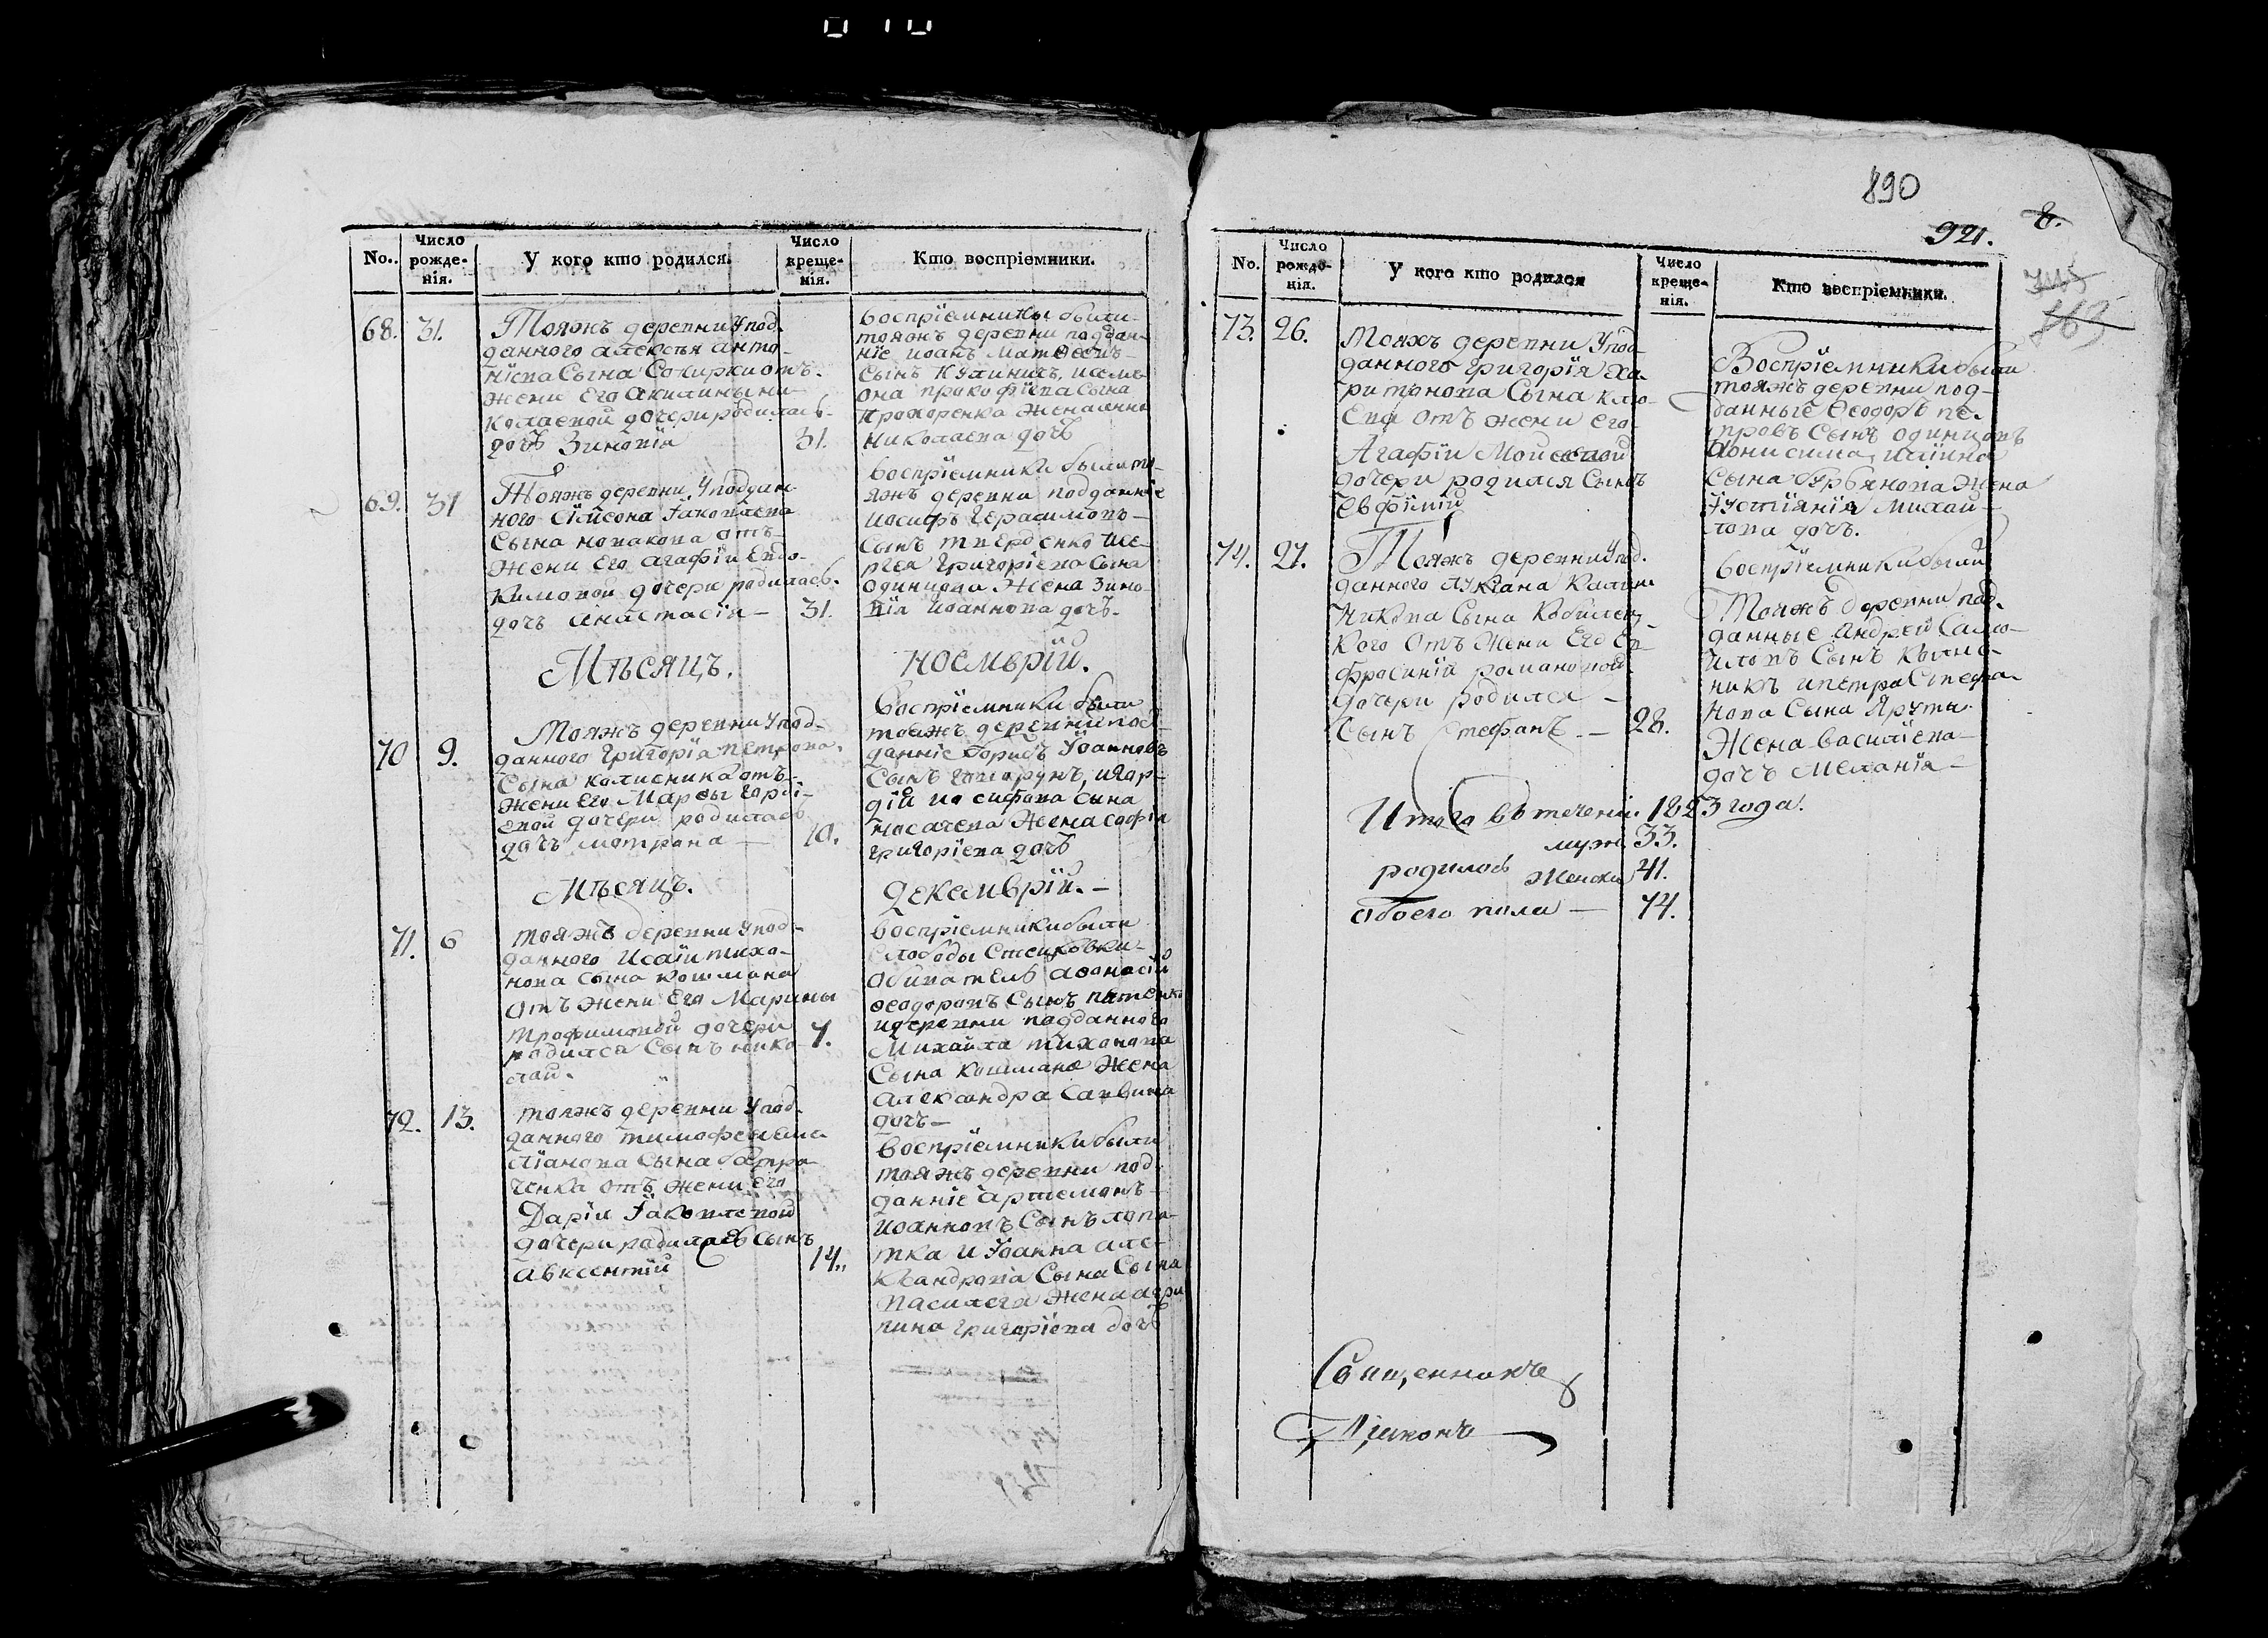 No.. Число рожде-нія. У кого кто родился. Число креще-нія. Кто воспріемники.
68. 31. Тояжъ деревни У под-
данного Алексѣя Анто-
нієва Сына Сокирки отъ
жени Его Акилины ни-
колаевой дочери родилась
дочь Зиновія 31.
воспріемники были
тояжъ деревни поддан-
ніе Иоанъ Матѳеевъ
Сынъ Кулиничъ, исиме-
она прокофіева Сына
Прохоренка жена анна
николаева дочь
69. 31 Тояжъ деревни У поддан-
ного Сімеона Іаковлева
Сына новакова отъ
жени Его Агафіи Евдо-
кимовой дочери родилась
дочь Анастасія — 31.
воспріемники были то-
яжъ деревни подданніе
Иосифъ Герасимовъ
Сынъ тверденко и се-
ргея Григоріева Сына
Одинцова Жена Зино-
вія Иоаннова дочь.
Мѣсяцъ. ноемврій.
70 9. Тояжъ деревни У под-
данного Григорія петрова
Сына колисника отъ
жени Его Марѳы Гордѣ-
евой дочери родилась
дочь мотрона — 10.
воспріемники были
тояжъ деревни под-
данніе Борисъ Іоанновъ
Сынъ Говорунъ, и гор-
дій иосифова сына
носачева Жена софія
григоріева дочь
Мѣсяцъ. декемврій. —
71. 6 тояжъ деревни У под-
данного Исаіи тихо-
нова Сына кошмана
отъ жени Его Марины
трофимовой дочери
родился Сынъ нико- 7.
лай.
воспріемники были
Слободы Стецковки
обиватель Аѳонасій
ѳеодоровъ Сынъ
и деревни подданного
Михаила тихонова
Сына Кошмана Жена
Александра Саввина
дочь —
72. 13. тояжъ деревни У под-
данного тимофея Еме-
ліанова Сына
отъ жени Его
Даріи Іаковлевой
дочери родилась Сынъ
Авксентій 14.
воспріемники были
тояжъ деревни под-
данніе Артемонъ
Иоанновъ Сынъ лопа-
тка и Іоанна але-
ксандрова Сына Сына
Василега жени агри-
пина григоріева дочь
890
921. 8.
No. Число рожде-нія. У кого кто родился Число креще-нія. Кто воспріемники.
73. 26. тояжъ деревни У под-
данного Григорія Ха-
ритонова Сына клю-
ева отъ жени его
Агафіи Мойсеевой
дочери родился Сынъ
Евфимій
Воспріемники были
тояжъ деревни под-
данные Ѳеодоръ пе-
тровъ Сынъ одинцовъ
Аонисима иліина
Сына Жена
Іустинія Михай-
лова дочь.
74. 27. Тояжъ деревни У под-
данного Лукіана Калин-
никова Сына Кобилец-
кого отъ жени Его Ев-
фросиніи романовой
дочери родился —
Сынъ Стефанъ. — 28.
воспріемники были
Тояжъ деревни под-
данные Андрей Само-
йловъ Сынъ Колис-
никъ и петра Стефа-
нова Сына Яруты
Жена василіева
дочь Меланія —
Итого въ теченіи 1823 года.
муж. 33.
родилось Женска 41.
обоего пола — 74.
Священникъ
Діаконъ